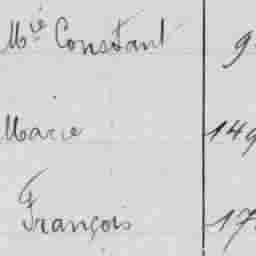 Mié Constant 9
Marie 149
François 17